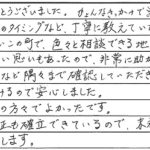 とうございました。かよんなき、かナで
のタイミングなど、丁寧に教えてい
いこの町で、色々と相談できる地
い思いもあったので、非常に助か
など隅々まで確認していただき
けるので安心しました。
の方々でよかったです。
正も確立できているので、本
します。